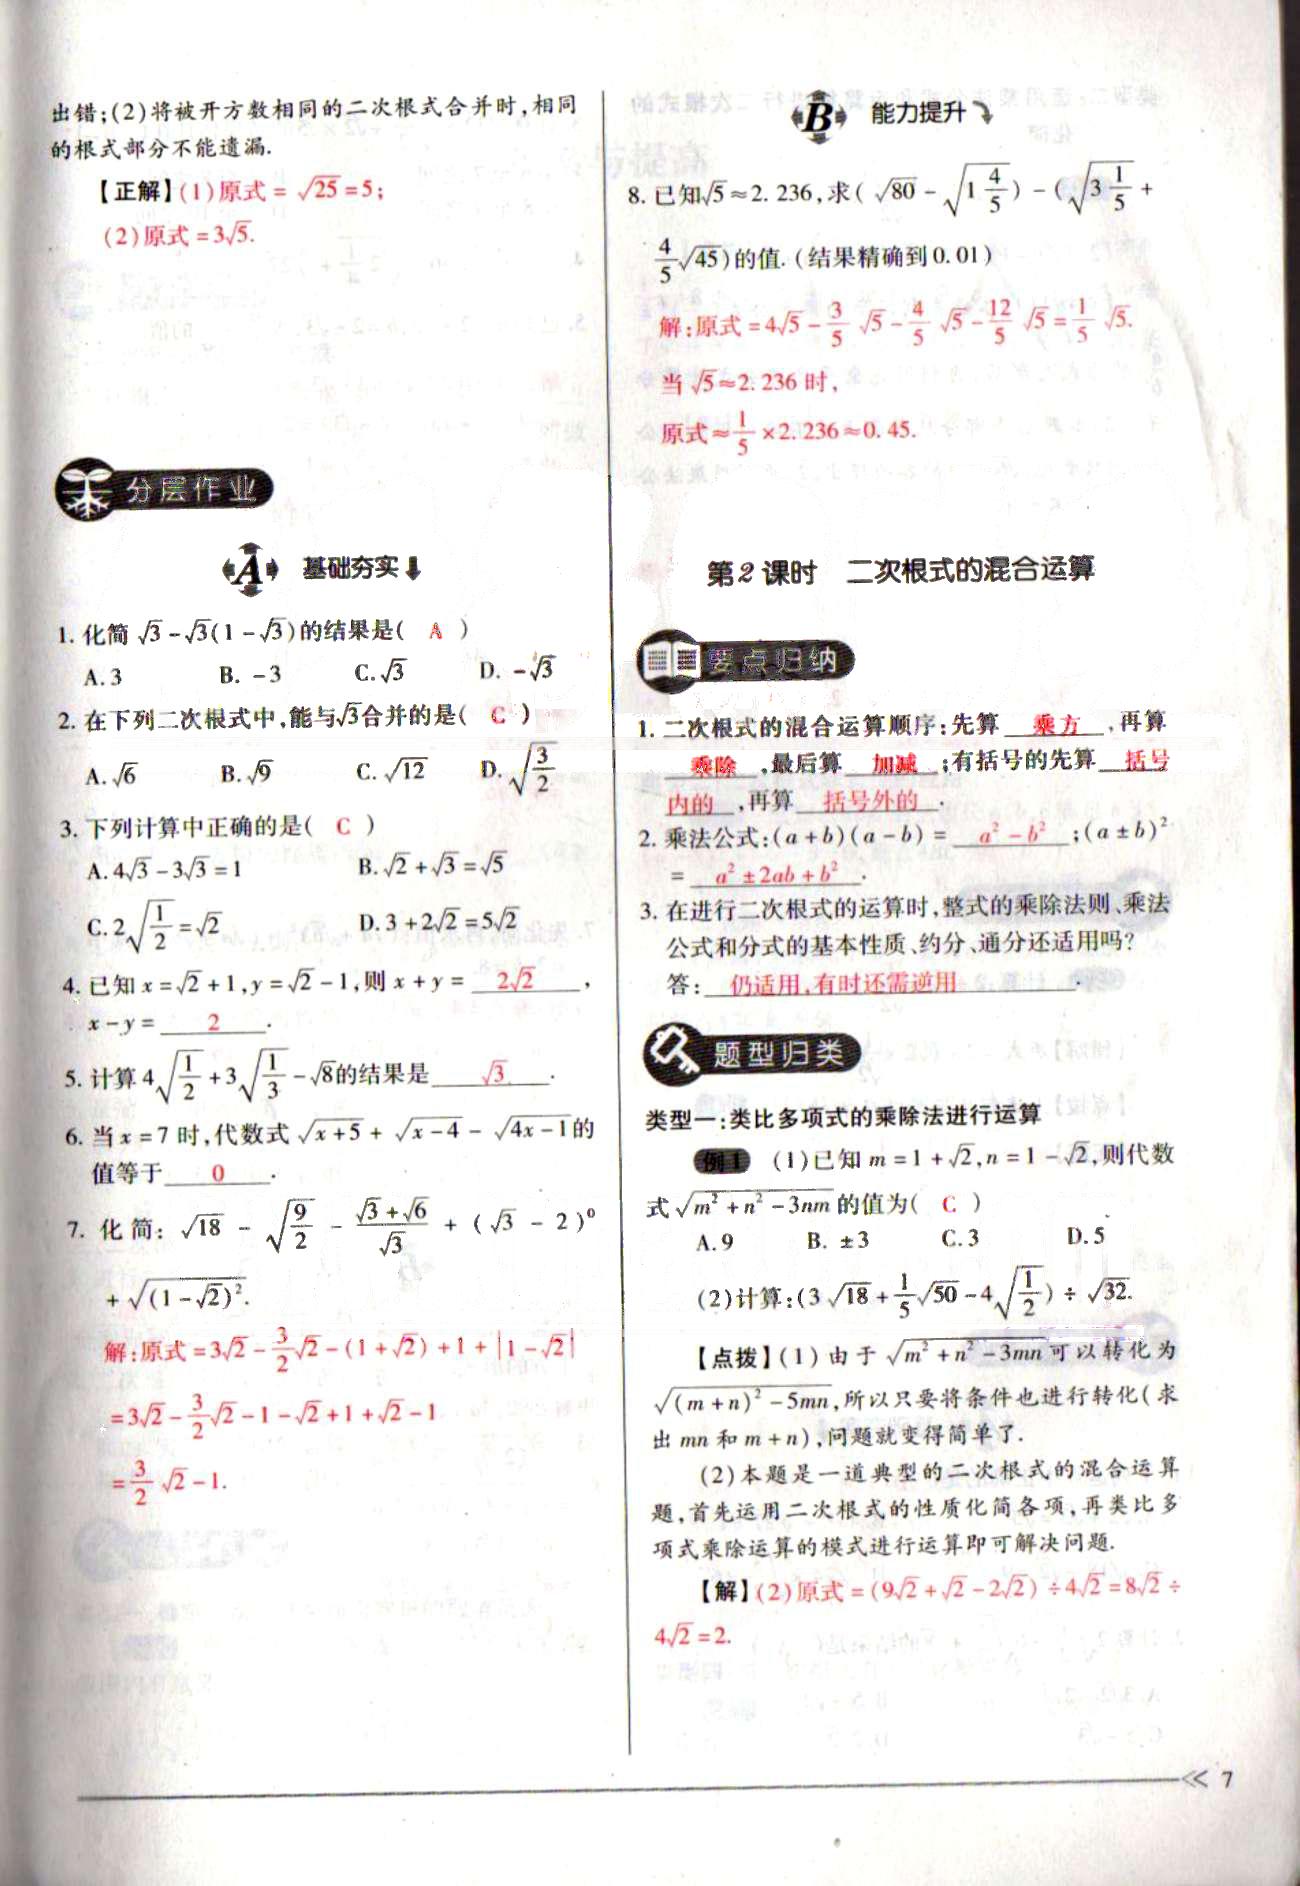 出错;(2)将被开方数相同的二次根式合并时,相同
的根式部分不能遗漏.
【正解】(1)原式=√25=5;
(2)原式=3√5.
分层作业
A 基础夯实
1. 化简 √3-√3(1-√3)的结果是( A )
A. 3 B. -3 C. √3 D. -√3
2. 在下列二次根式中,能与√3合并的是( C )
A. √6 B. √9 C. √12 D. √(3/2)
3. 下列计算中正确的是( C )
A. 4√3-3√3=1 B. √2+√3=√5
C. 2√(1/2)=√2 D. 3+2√2=5√2
4. 已知 x=√2+1,y=√2-1,则 x+y= 2√2 ,
x-y= 2 .
5. 计算 4√(1/2)+3√(1/3)-√8的结果是 √3 .
6. 当 x=7 时,代数式 √(x+5)+√(x-4)-√(4x-1)的
值等于 0 .
7. 化简: √18-√(9/2)-(√3+√6)/√3+(√3-2)⁰
+√((1-√2)²).
解:原式=3√2-(3/2)√2-(1+√2)+1+|1-√2|
=3√2-(3/2)√2-1-√2+1+√2-1
=(3/2)√2-1.
B 能力提升
8. 已知√5≈2.236,求(√80-√(1 4/5))-(√(3 1/5)+
(4/5)√45)的值.(结果精确到0.01)
解:原式=4√5-(3/5)√5-(4/5)√5-(12/5)√5=(1/5)√5.
当 √5≈2.236 时,
原式≈(1/5)×2.236≈0.45.
第2课时 二次根式的混合运算
要点归纳
1. 二次根式的混合运算顺序:先算 乘方 ,再算
乘除 ,最后算 加减 ;有括号的先算 括号
内的 ,再算 括号外的 .
2. 乘法公式:(a+b)(a-b)= a²-b² ;(a±b)²
= a²±2ab+b² .
3. 在进行二次根式的运算时,整式的乘除法则、乘法
公式和分式的基本性质、约分、通分还适用吗?
答: 仍适用,有时还需逆用 .
题型归类
类型一:类比多项式的乘除法进行运算
例1 (1)已知 m=1+√2,n=1-√2,则代数
式√(m²+n²-3nm)的值为( C )
A. 9 B. ±3 C. 3 D. 5
(2)计算:(3√18+(1/5)√50-4√(1/2))÷√32.
【点拨】(1)由于√(m²+n²-3mn)可以转化为
√((m+n)²-5mn),所以只要将条件也进行转化(求
出 mn 和 m+n),问题就变得简单了.
(2)本题是一道典型的二次根式的混合运算
题,首先运用二次根式的性质化简各项,再类比多
项式乘除运算的模式进行运算即可解决问题.
【解】(2)原式=(9√2+√2-2√2)÷4√2=8√2÷
4√2=2.
7